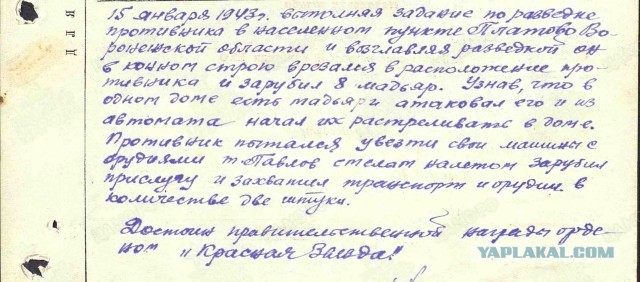 15 января 1943г. выполняя задание по разведке
противника в населенном пункте Платово Во-
ронежской области и возглавляя разведкой он
в конном строю врезался в расположение про-
тивника и зарубил 8 мадьяр. Узнав, что в
одном доме есть мадьяры атаковал его и из
автомата начал их растреливать в доме.
Противник пытался увезти свои машины с
орудиями т. Павлов смелым налетом зарубил
прислугу и захватил транспорт и орудии в
количестве две штуки.
Достоин правительственной награды орде-
ном "Красная Звезда"
YAPLAKAL.COM